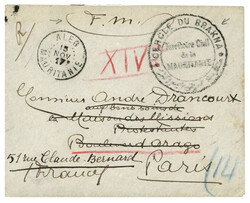 F.M.
ALEG
15
NOV
17
MAURITANIE
XIV
CERCLE DU BRAKNA
Territoire Civil
de la
MAURITANIE
Monsieur André Drancourt
Maison des Missions
Protestantes
Boulevard Arago
51 rue Claude-Bernard
Paris
(France)
(14